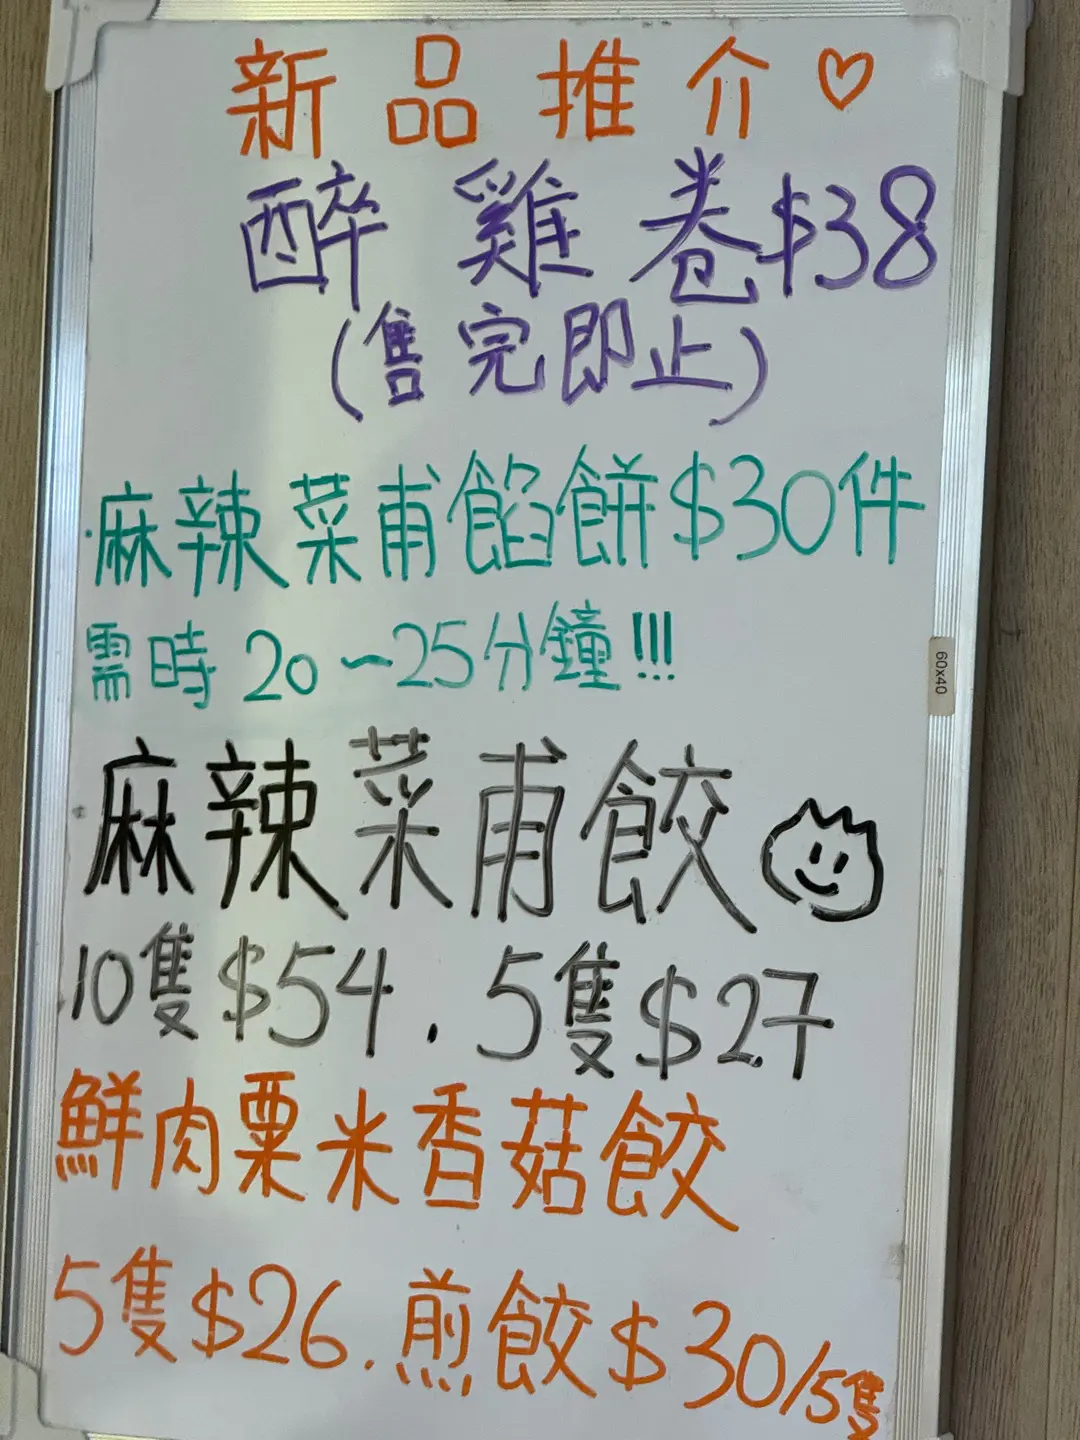 新品推介♡
醉雞卷$38
(售完即止)
·麻辣菜甫餡餅$30件
需時20~25分鐘!!!
麻辣菜甫餃
10隻$54.5隻$27
鮮肉粟米香菇餃
5隻$26.煎餃$30/5隻
60x40